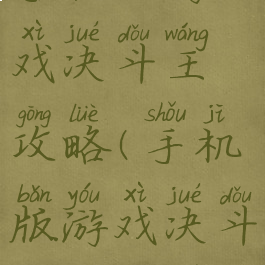 xì jué dǒu wáng
戏决斗王
gōng lüè shǒu jī
攻略(手机
bǎn yóu xì jué dǒu
版游戏决斗